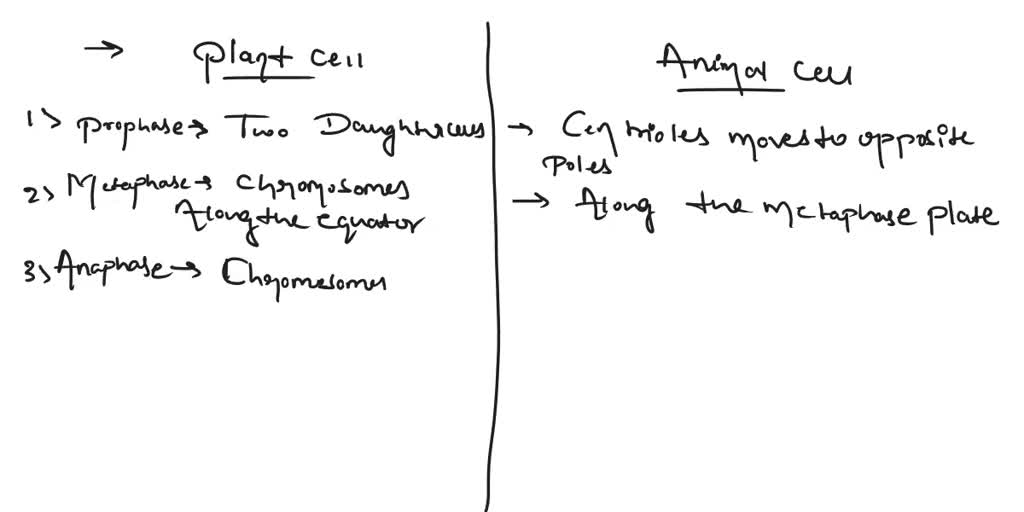 → Plant cell
1) Prophase → Two Daughtercells
2) Metaphase → Chromosomes
Along the equator
3) Anaphase → Chromosomes
Animal cell
→ Centrioles moves to opposite
Poles
→ Along the metaphase plate